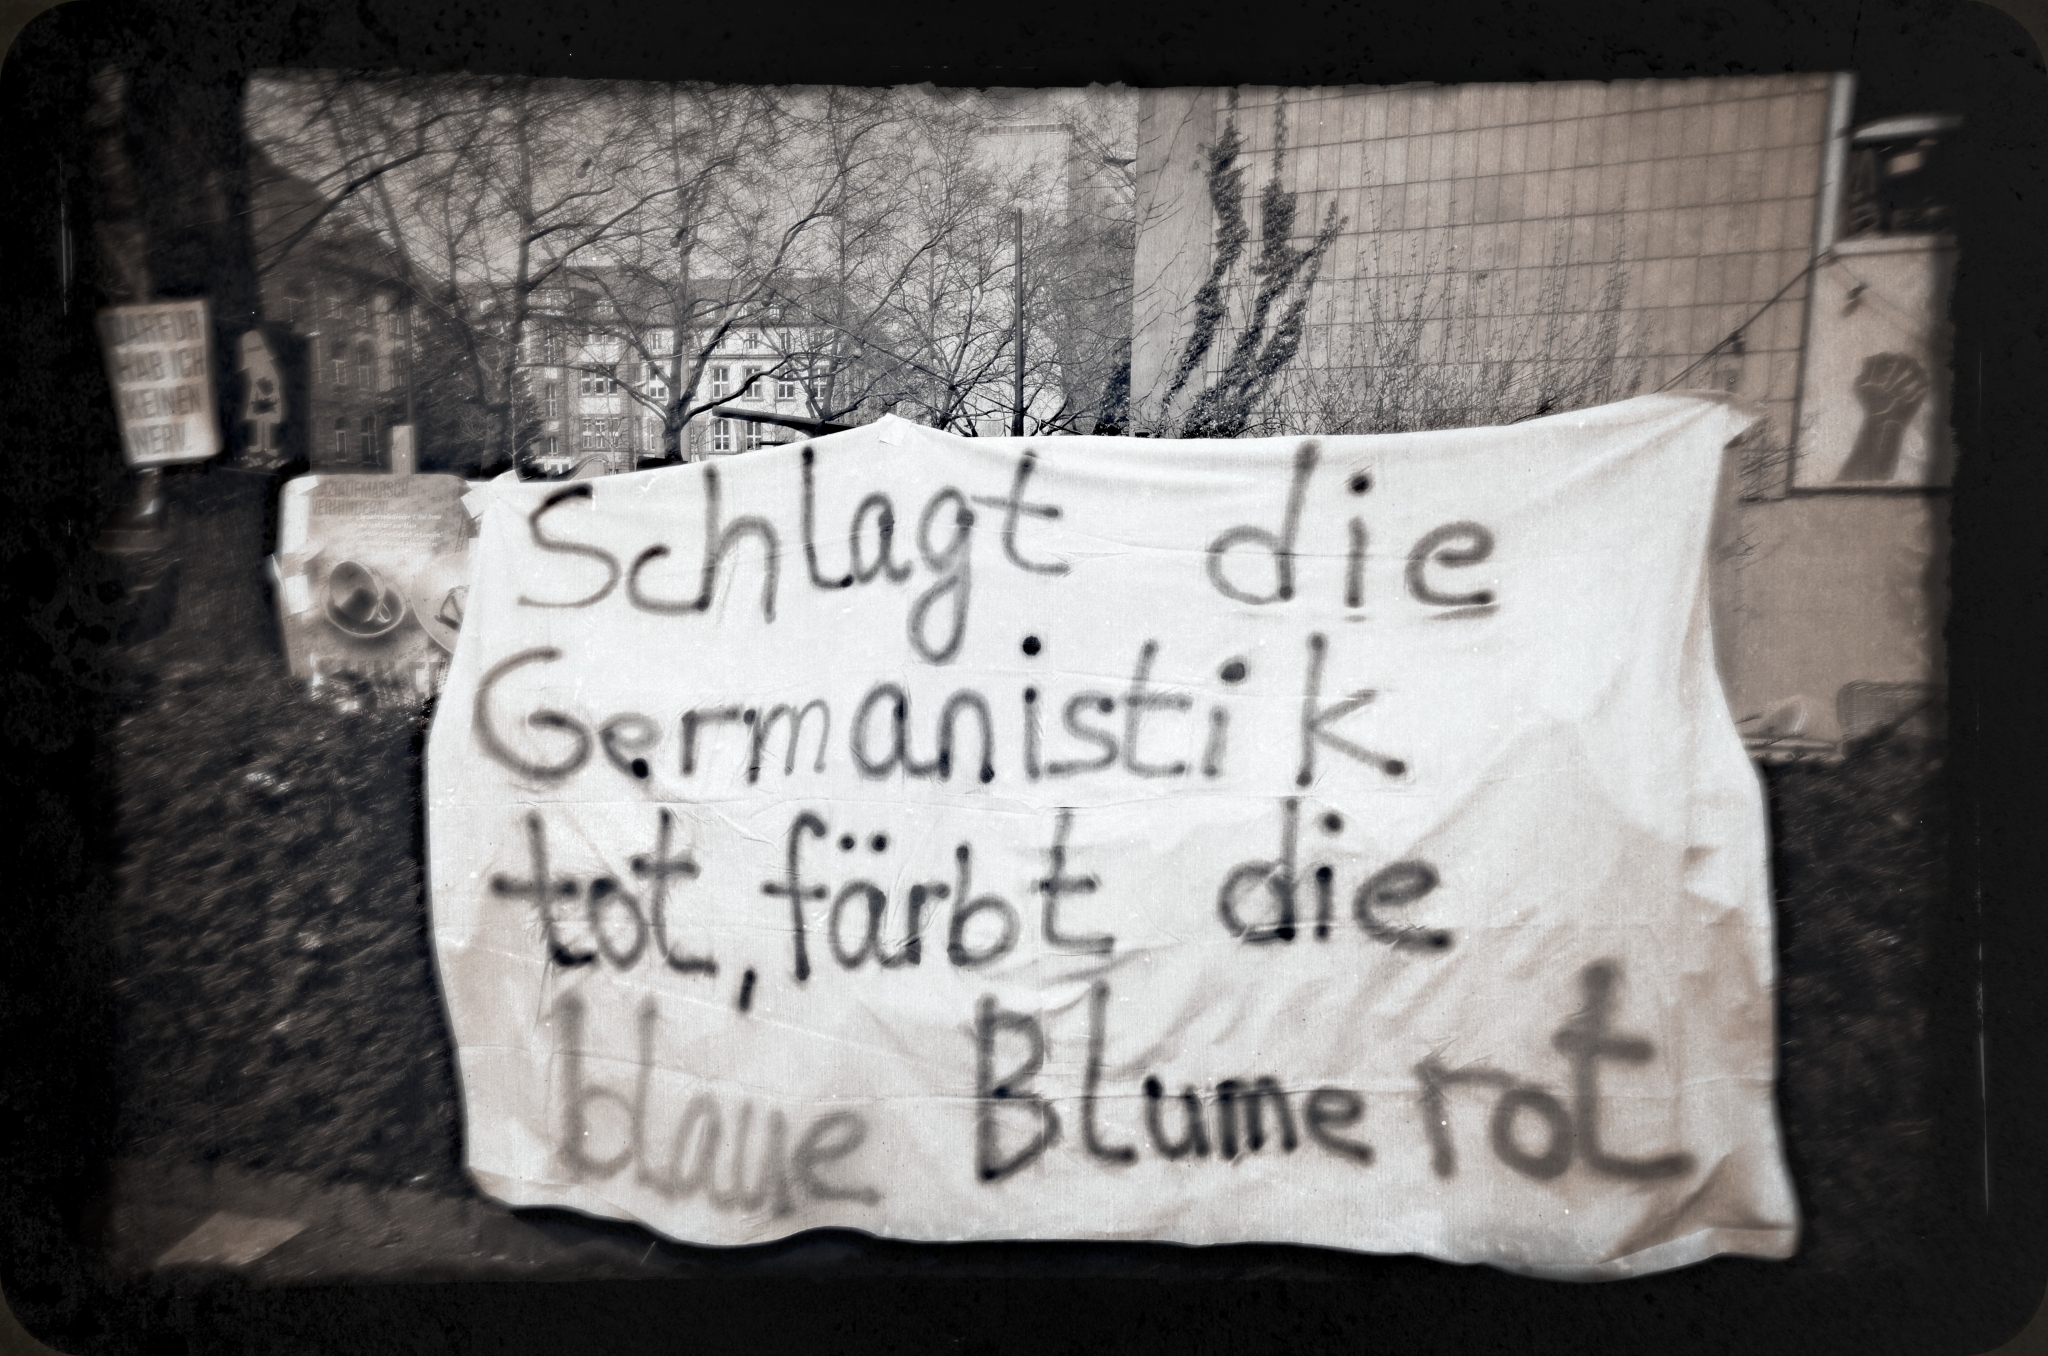 DAFÜR
HAB ICH
KEINEN
NERV.
NAZIAUFMARSCH
VERHINDERN
Schlagt die
Germanistik
tot, färbt die
blaue Blume rot